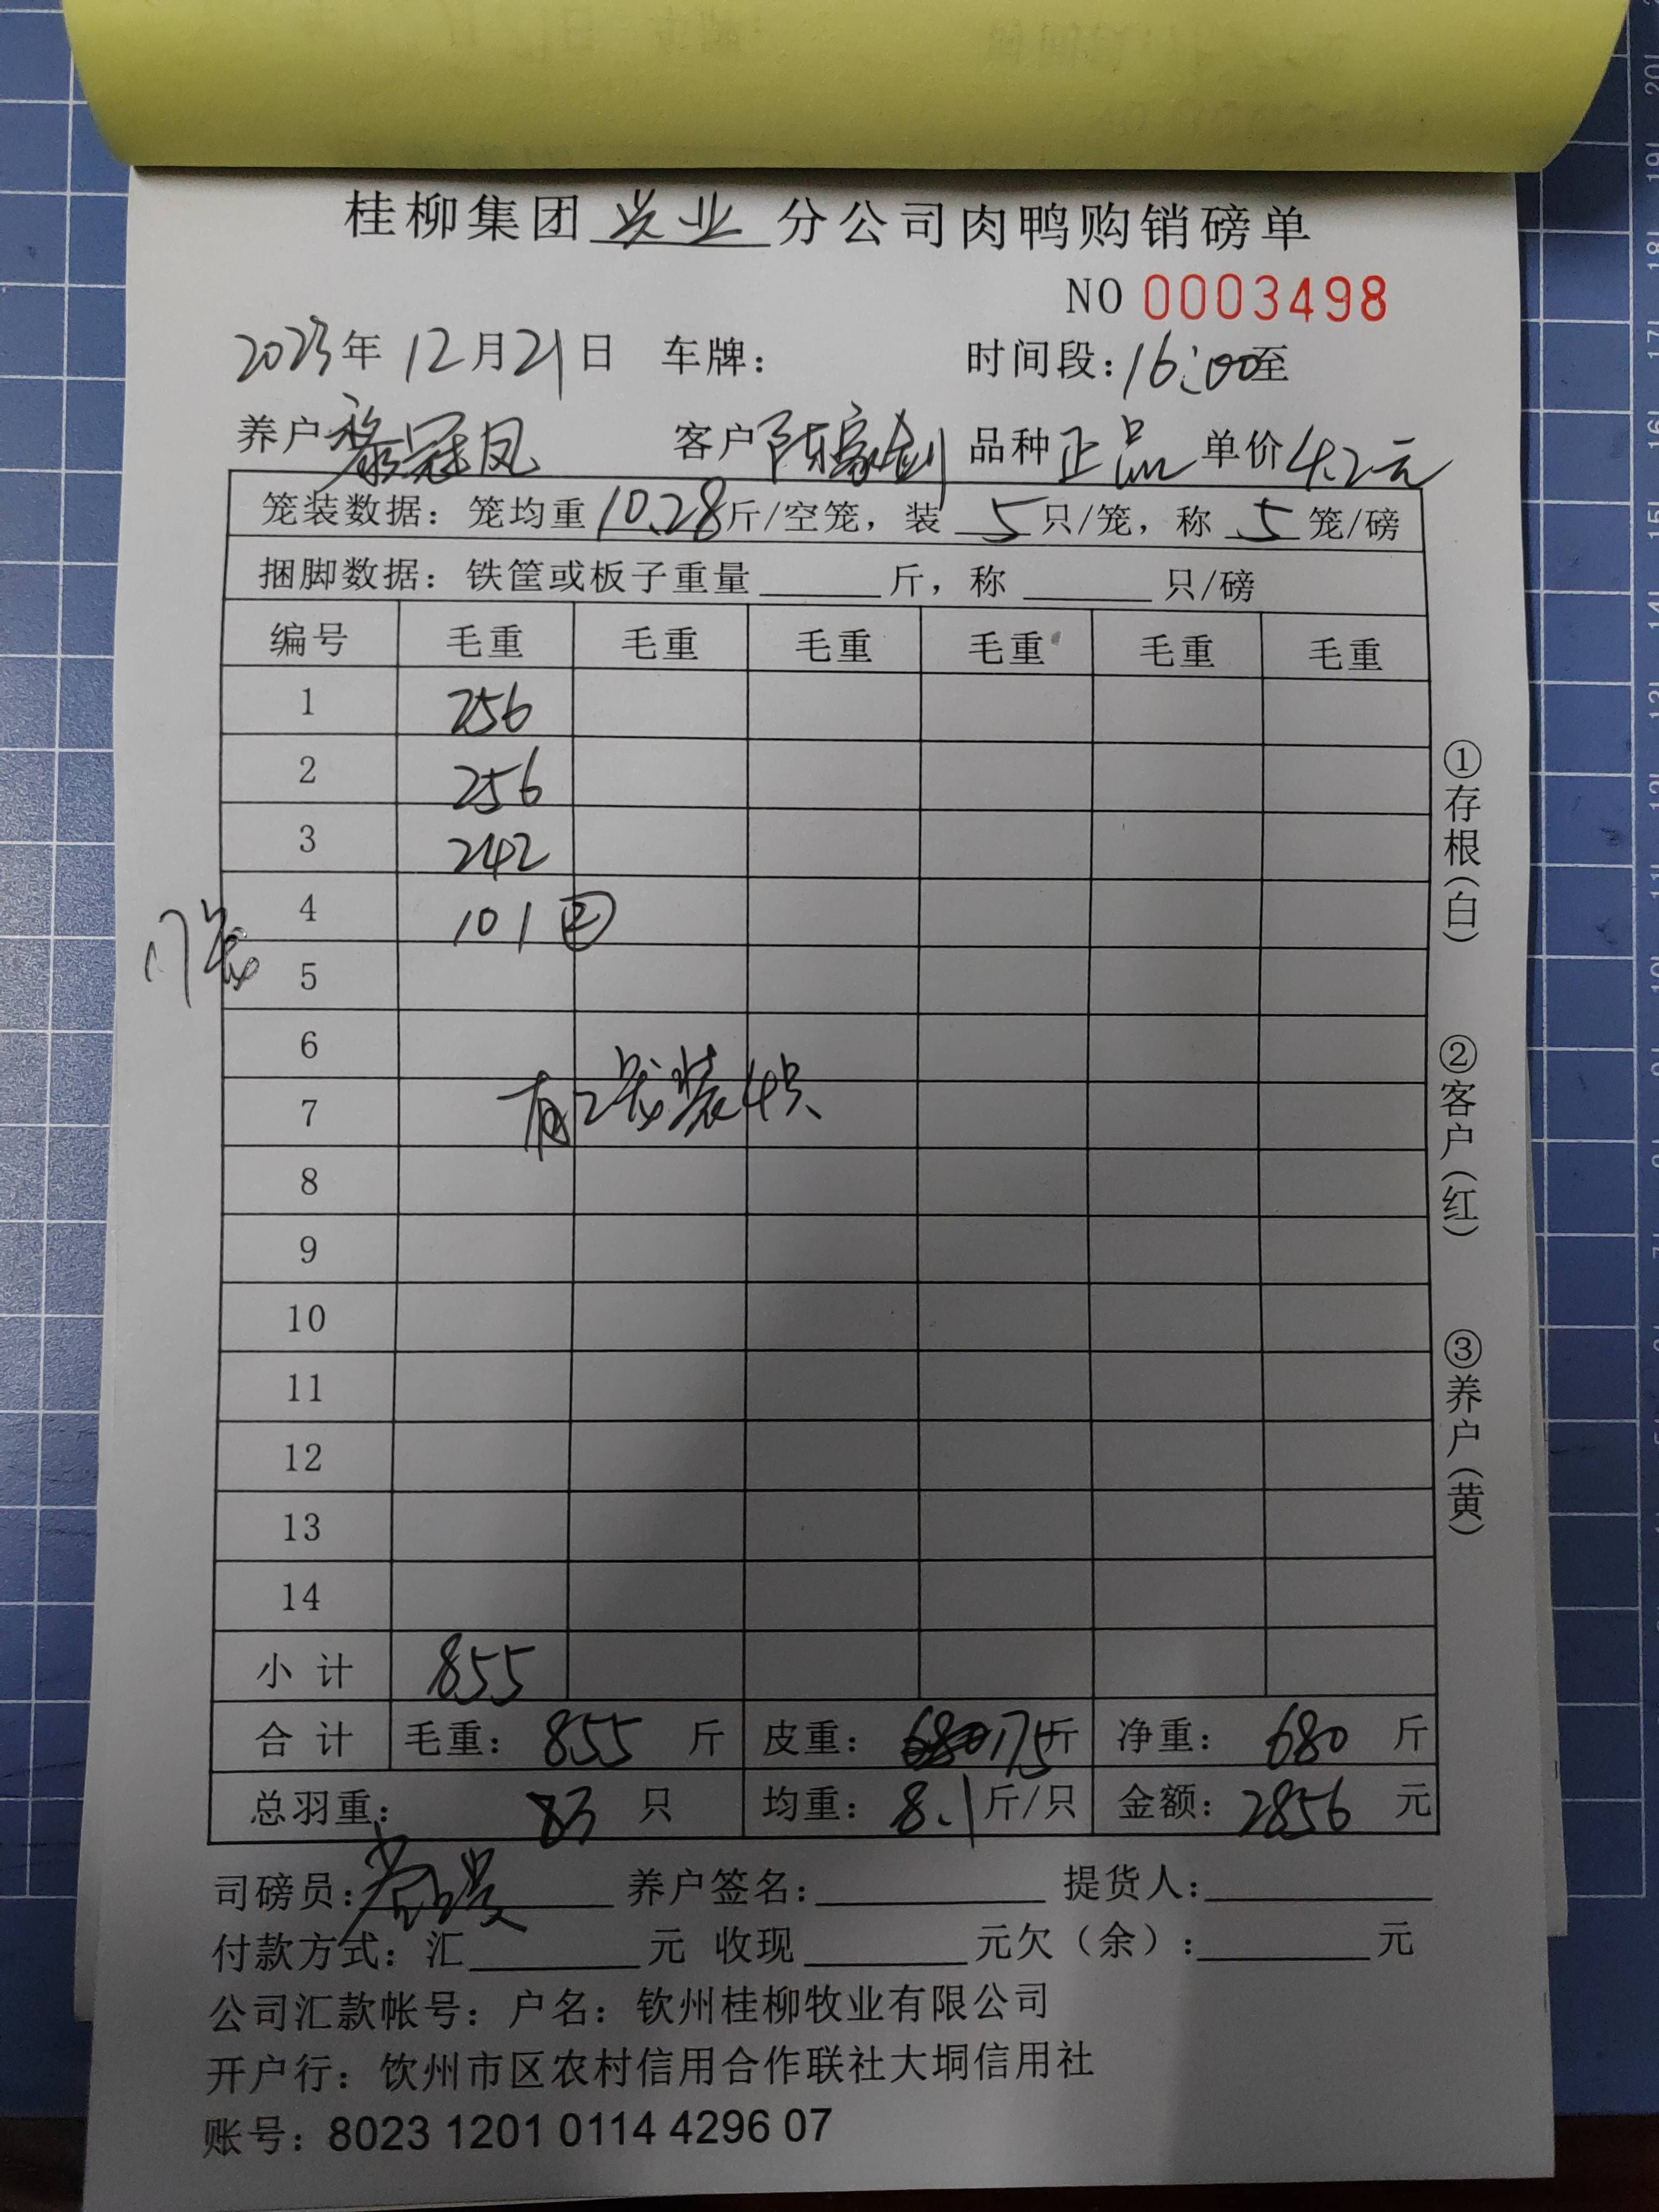 桂柳集团兴业分公司肉鸭购销磅单
NO 0003498
2023年 12月21日 车牌： 时间段：16:00至
养户黎冠凤 客户陈家剑 品种正品 单价4.2元
笼装数据：笼均重10.28斤/空笼，装5只/笼，称5笼/磅
捆脚数据：铁筐或板子重量______斤，称______只/磅
编号 毛重 毛重 毛重 毛重 毛重 毛重
1 256
2 256
3 242
4 101 ②
17笼
5
6
有2笼装4只
7
8
9
10
11
12
13
14
小计 855
合计 毛重：855斤 皮重：175斤 净重：680斤
总羽重：83只 均重：8.1斤/只 金额：2856元
司磅员： 养户签名：______ 提货人：______
付款方式：汇______元 收现______元欠（余）:______元
公司汇款帐号：户名：钦州桂柳牧业有限公司
开户行：钦州市区农村信用合作联社大垌信用社
账号：8023 1201 0114 4296 07
①存根（白）
②客户（红）
③养户（黄）